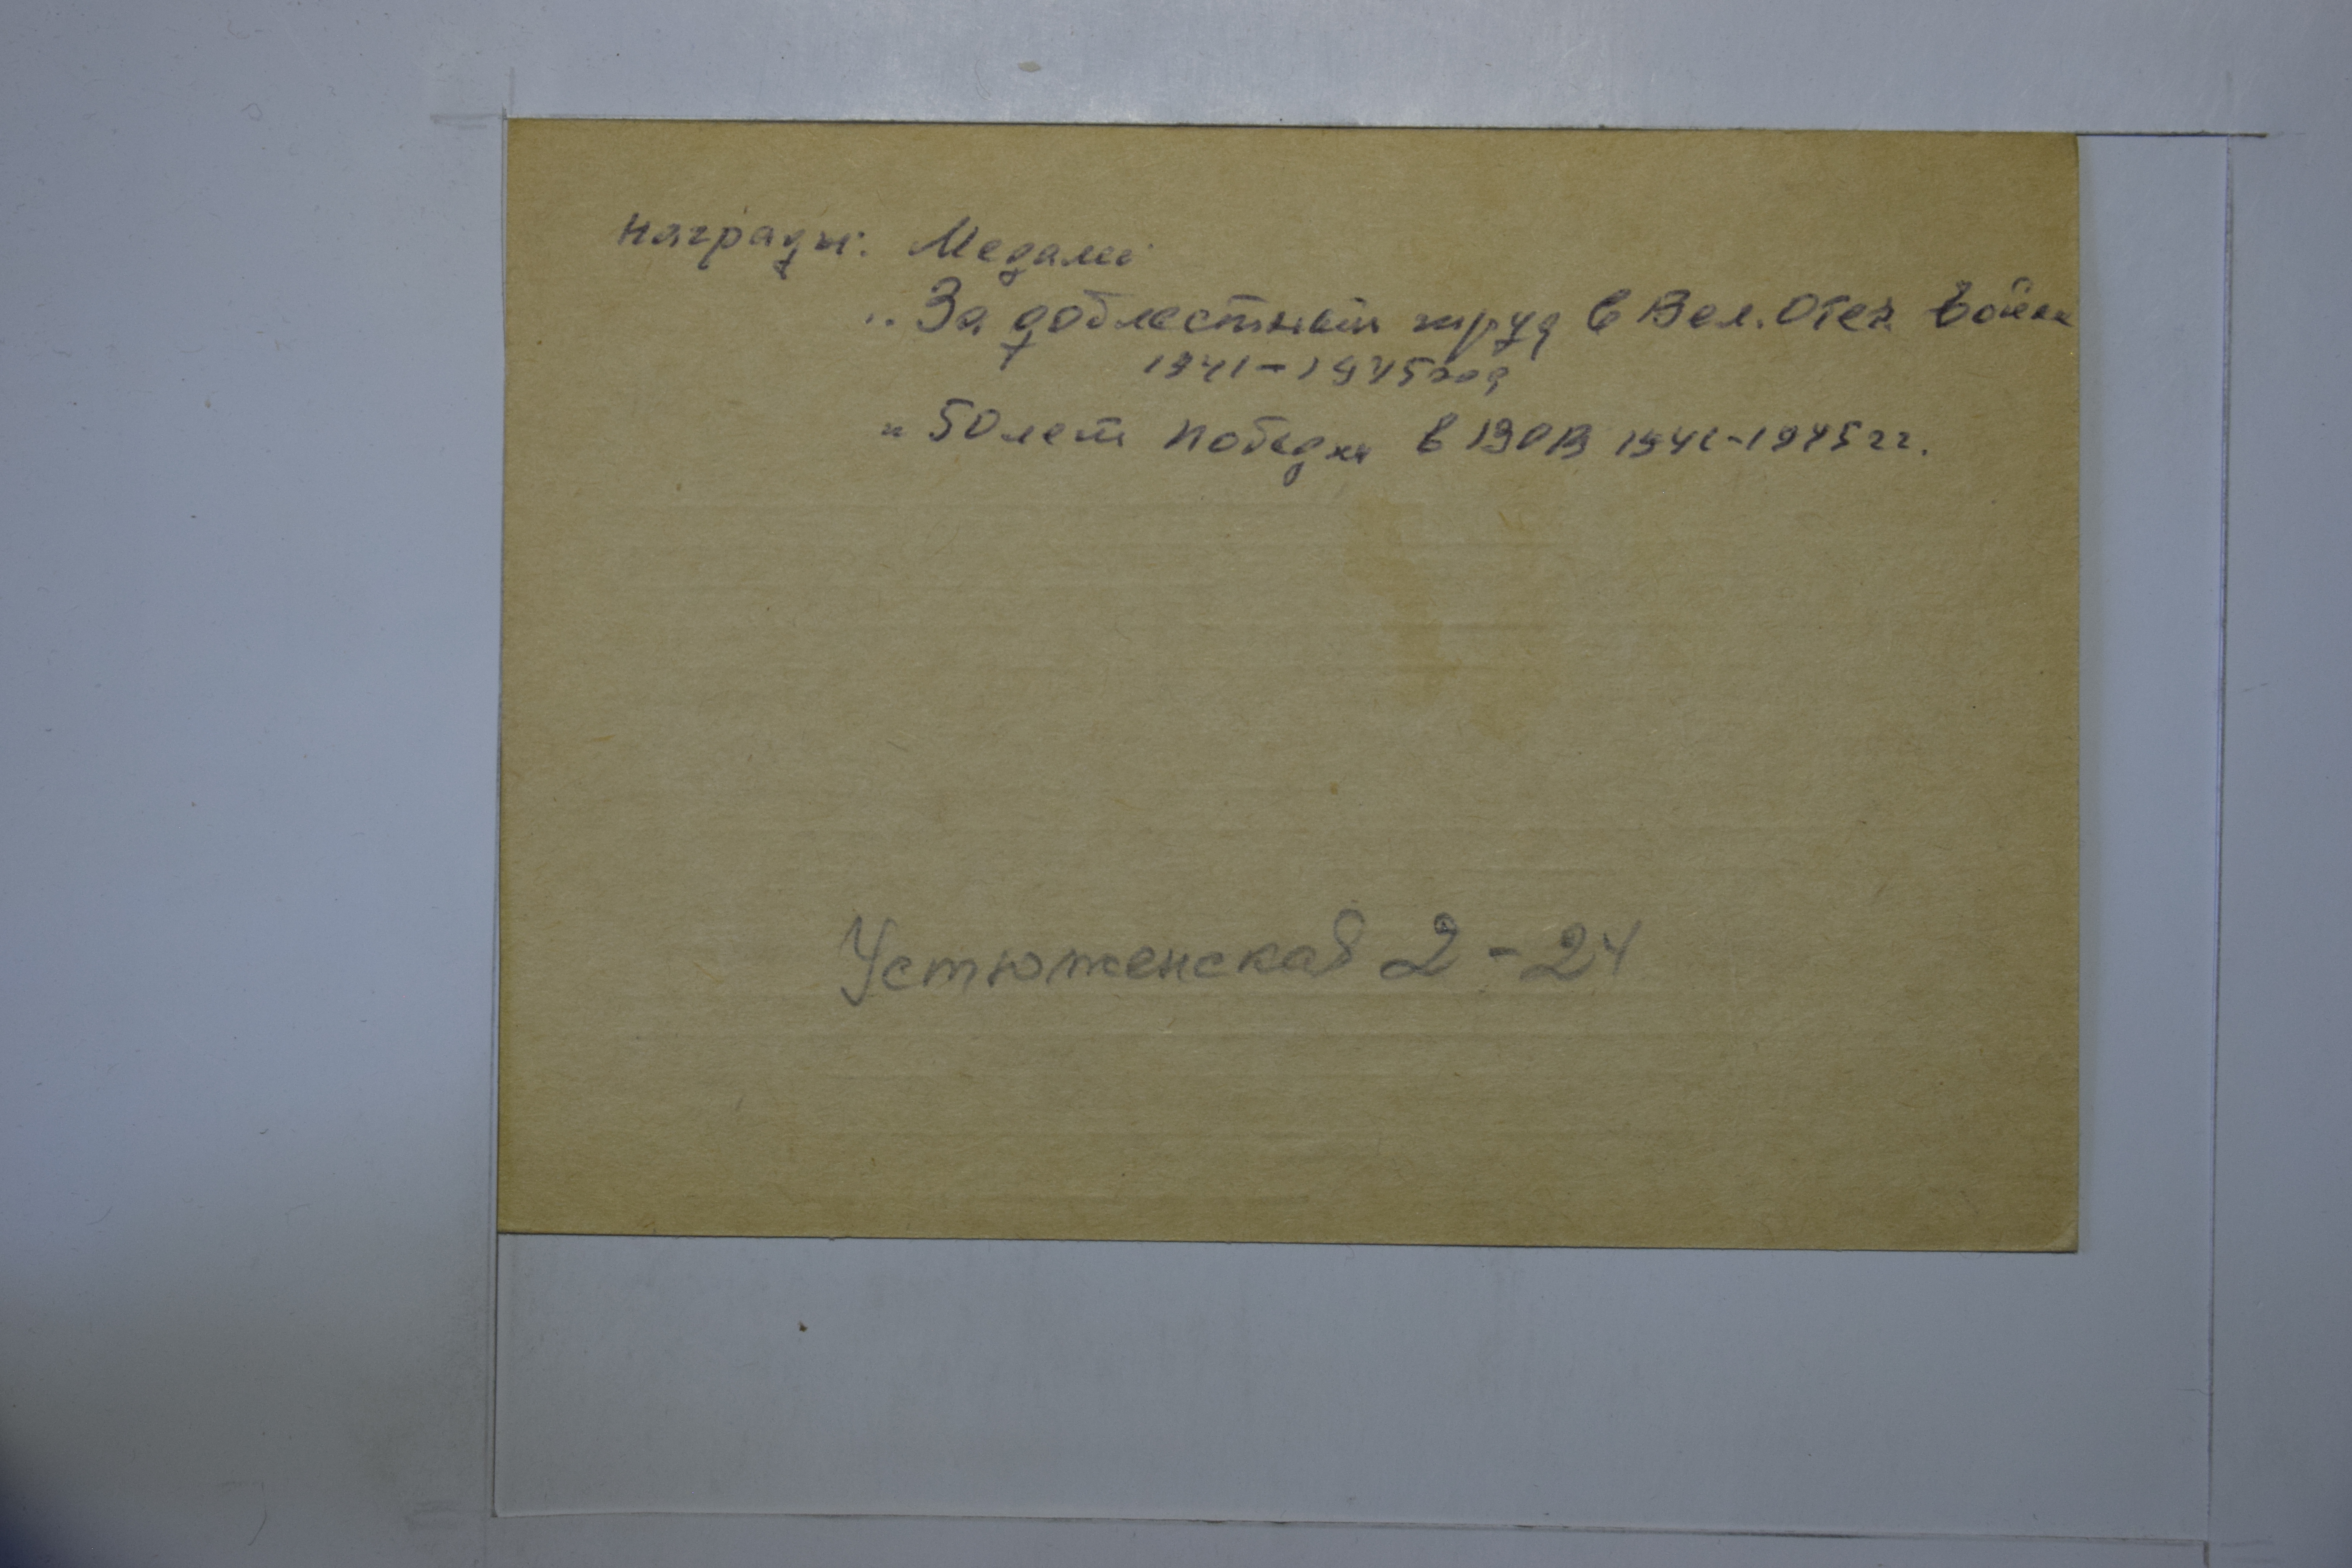 Награды: Медали
„За доблестный труд в Вел. Отеч. Войне
1941-1945 год
" 50 лет Победы в ВОВ 1941-1945 гг.
Устюженская 2-24